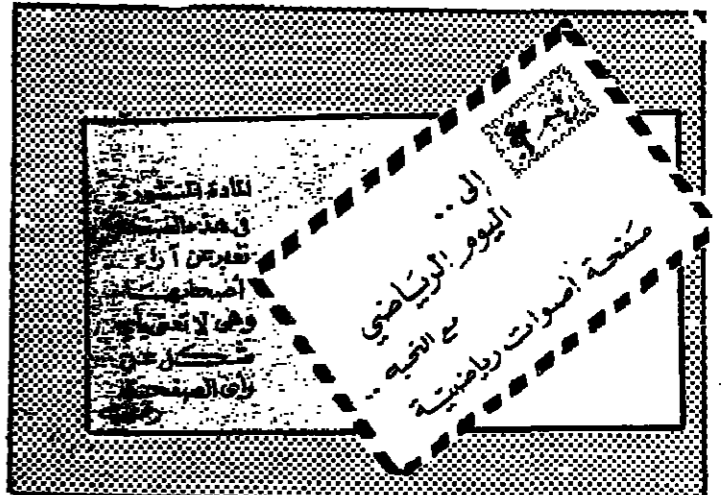 المادة المنشورة
في هذه الصفحة
تعبر عن آراء
أصحابها
وهي لا تعبر بأي
شكل عن
رأي الصفحة
إلى ..
اليوم الرياضي
مع التحية ..
صفحة أصوات رياضية